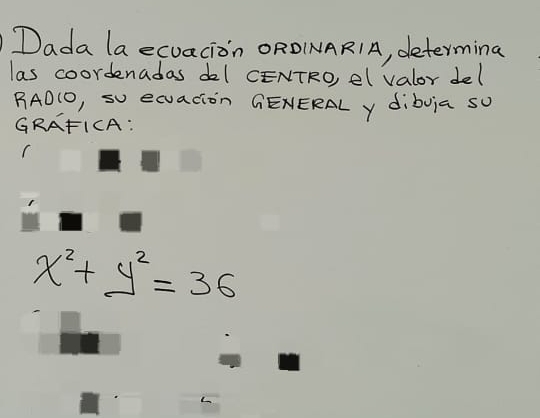 Dada la ecuación ORDINARIA, determina
las coordenadas del CENTRO, el valor del
RADIO, su ecuación GENERAL y dibuja su
GRÁFICA:
x² + y² = 36